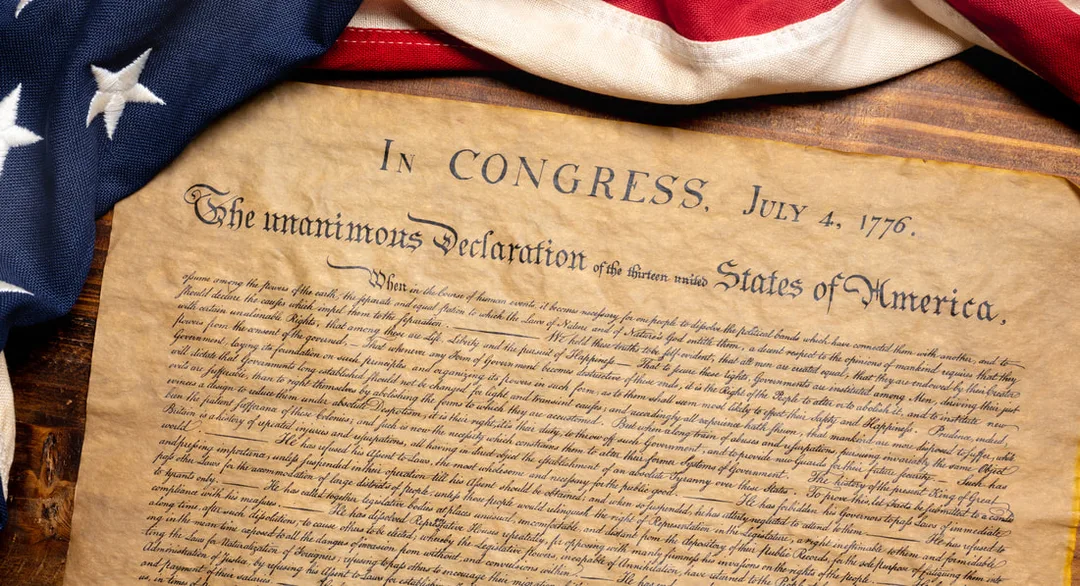 In CONGRESS, July 4, 1776.
The unanimous Declaration of the thirteen united States of America,
When in the Course of human events, it becomes necessary for one people to dissolve the political bands which have connected them with another, and to
assume among the powers of the earth, the separate and equal station to which the Laws of Nature and of Nature's God entitle them, a decent respect to the opinions of mankind requires that they
should declare the causes which impel them to the separation. — We hold these truths to be self-evident, that all men are created equal, that they are endowed by their Creator
with certain unalienable Rights, that among these are Life, Liberty and the pursuit of Happiness. — That to secure these rights, Governments are instituted among Men, deriving their just
powers from the consent of the governed, — That whenever any Form of Government becomes destructive of these ends, it is the Right of the People to alter or to abolish it, and to institute new
Government, laying its foundation on such principles and organizing its powers in such form, as to them shall seem most likely to effect their Safety and Happiness. Prudence, indeed,
will dictate that Governments long established should not be changed for light and transient causes; and accordingly all experience hath shewn, that mankind are more disposed to suffer, while
evils are sufferable, than to right themselves by abolishing the forms to which they are accustomed. But when a long train of abuses and usurpations, pursuing invariably the same Object
evinces a design to reduce them under absolute Despotism, it is their right, it is their duty, to throw off such Government, and to provide new Guards for their future security. — Such has
been the patient sufferance of these Colonies; and such is now the necessity which constrains them to alter their former Systems of Government. The history of the present King of Great
Britain is a history of repeated injuries and usurpations, all having in direct object the establishment of an absolute Tyranny over these States. To prove this, let Facts be submitted to a candid
world. — He has refused his Assent to Laws, the most wholesome and necessary for the public good. — He has forbidden his Governors to pass Laws of immediate
and pressing importance, unless suspended in their operation till his Assent should be obtained; and when so suspended, he has utterly neglected to attend to them. — He has refused to
pass other Laws for the accommodation of large districts of people, unless those people would relinquish the right of Representation in the Legislature, a right inestimable to them and formidable
to tyrants only. — He has called together legislative bodies at places unusual, uncomfortable, and distant from the depository of their Public Records, for the sole purpose of fatiguing them into
compliance with his measures. — He has dissolved Representative Houses repeatedly, for opposing with manly firmness his invasions on the rights of the people. — He has
long time, after such dissolutions, to cause others to be elected; whereby the Legislative powers, incapable of Annihilation, have returned to the People
ing in the mean time exposed to all the dangers of invasion from without, and convulsions within. — He has
ing the Laws for Naturalization of Foreigners; refusing to pass others to encourage their
Administration of Justice, by refusing his Assent to Laws for
and payment of their salaries. —
us, in times of